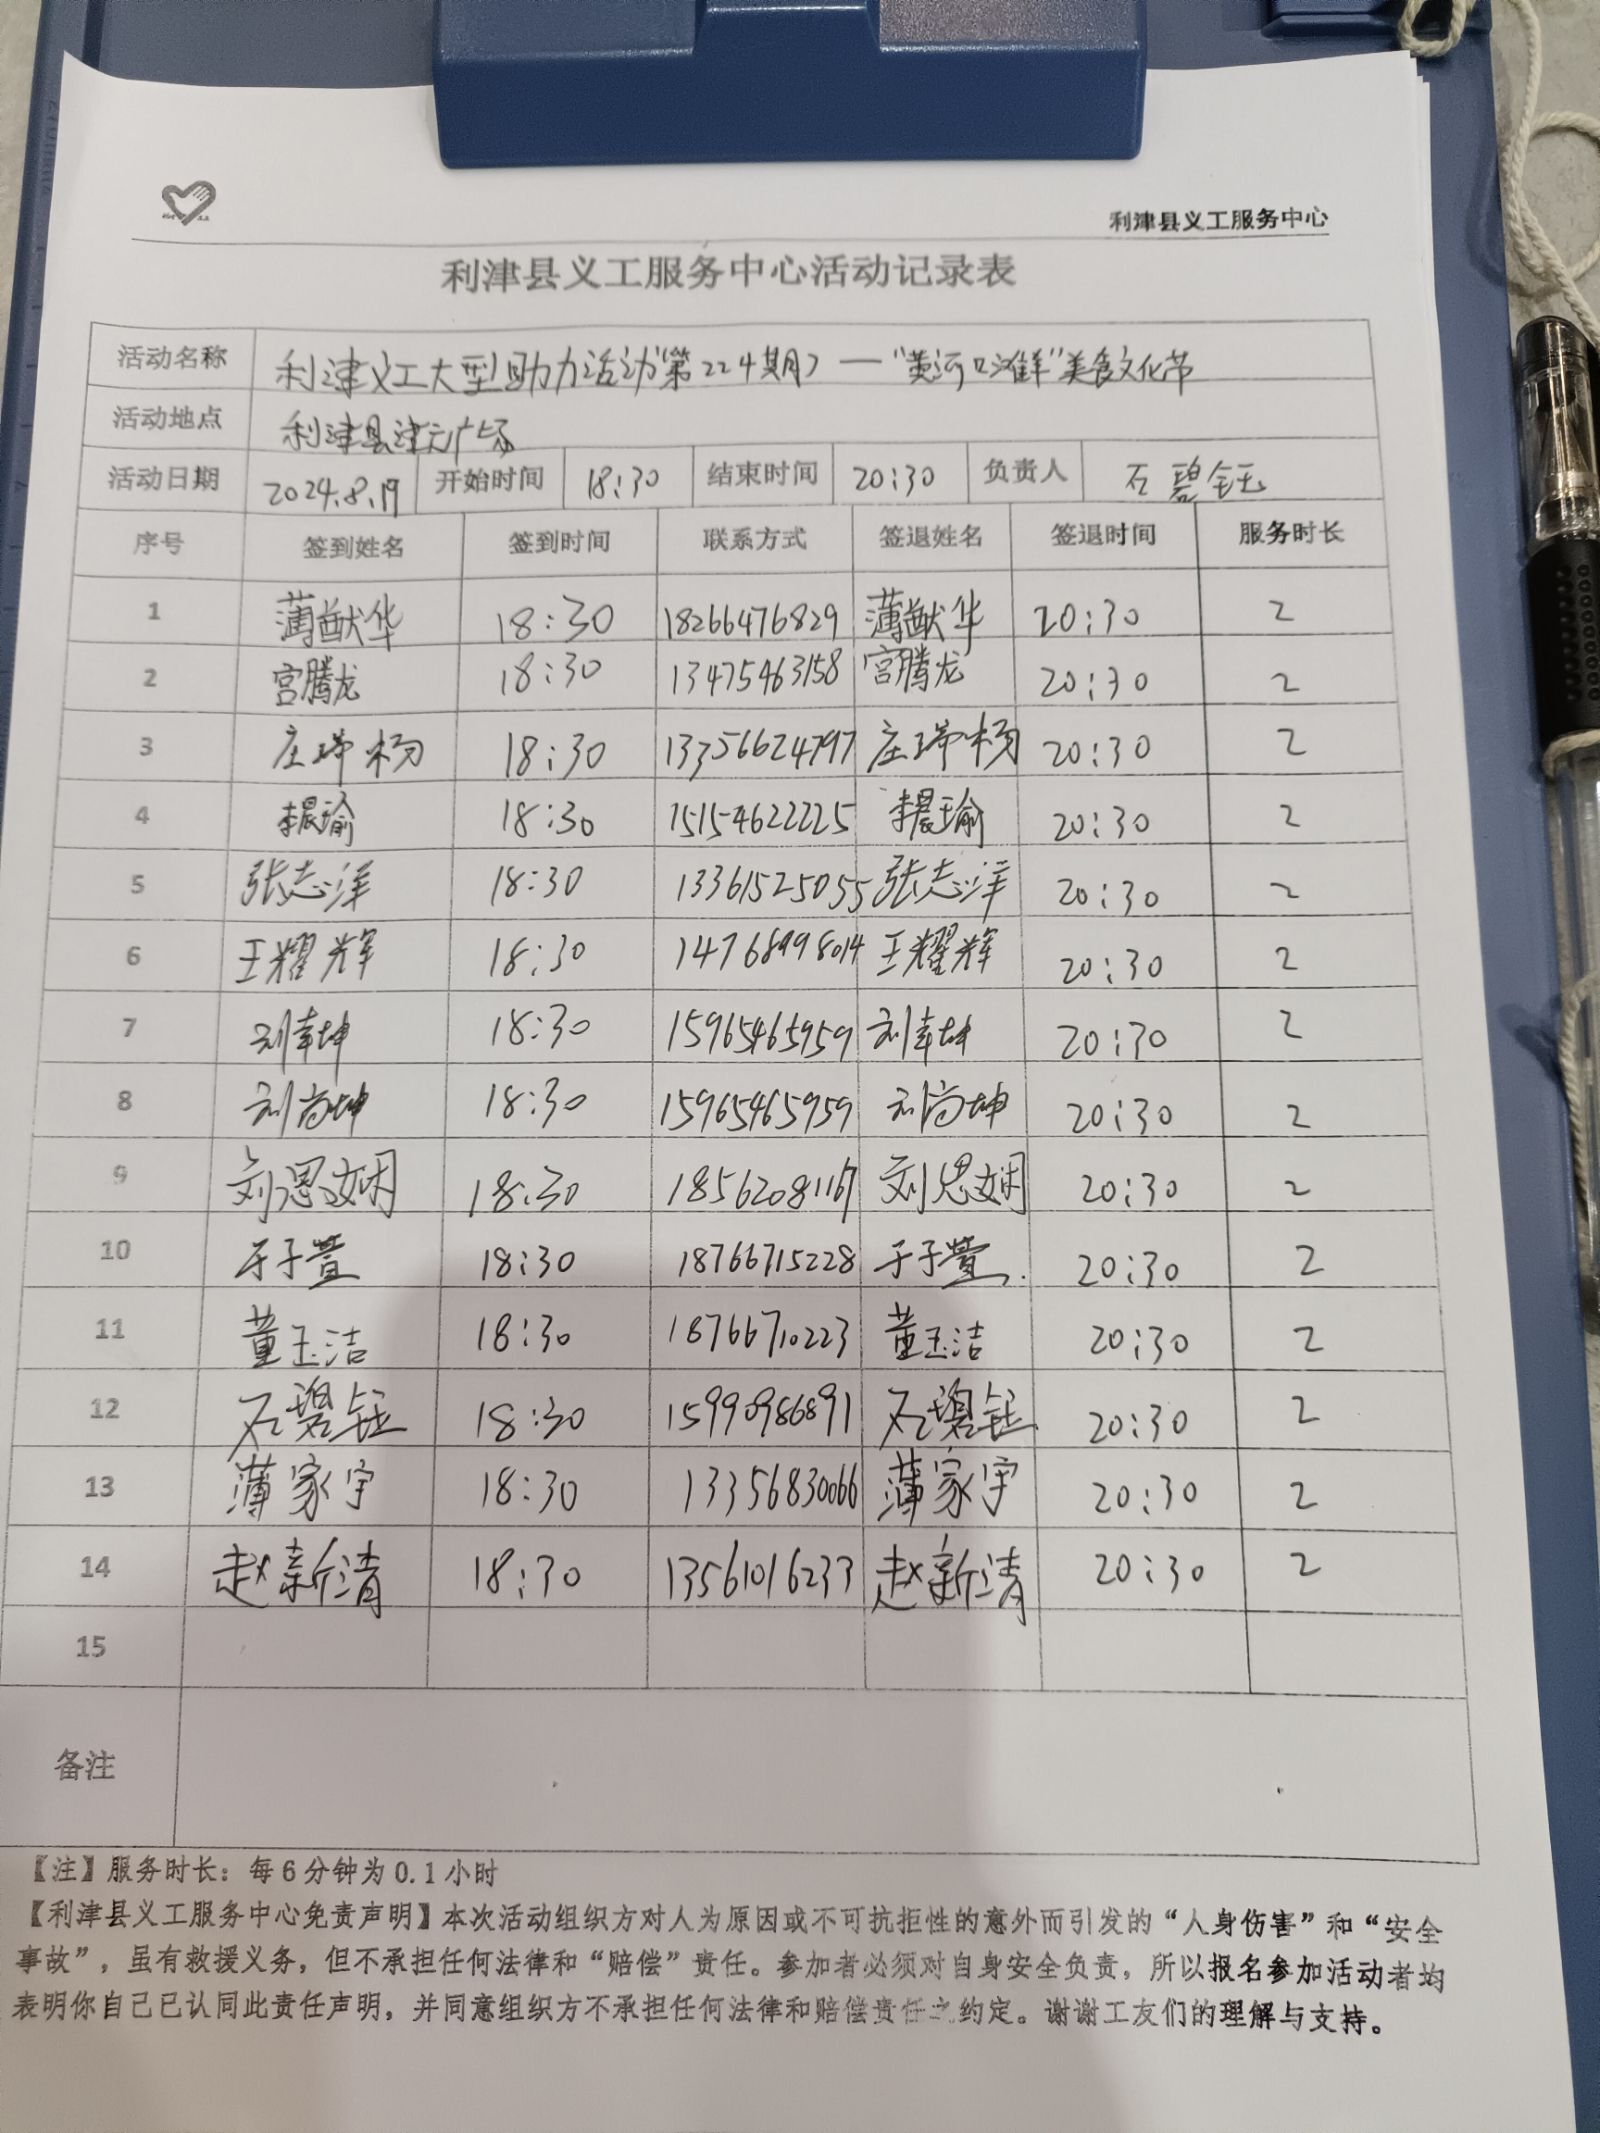 利津县义工服务中心
利津县义工服务中心活动记录表
活动名称 利津义工大型助力活动(第224期)—“黄河口滩羊”美食文化节
活动地点 利津县津元广场
活动日期 2024.8.19 开始时间 18:30 结束时间 20:30 负责人 石碧钰
序号 签到姓名 签到时间 联系方式 签退姓名 签退时间 服务时长
1 薄猷华 18:30 18266476829 薄猷华 20:30 2
2 宫腾龙 18:30 13475463158 宫腾龙 20:30 2
3 庄瑞杨 18:30 13356624797 庄瑞杨 20:30 2
4 李晨瑜 18:30 15154622225 李晨瑜 20:30 2
5 张志洋 18:30 13361525055 张志洋 20:30 2
6 王耀辉 18:30 14768998014 王耀辉 20:30 2
7 刘幸坤 18:30 15965465959 刘幸坤 20:30 2
8 刘尚坤 18:30 15965465959 刘尚坤 20:30 2
9 刘思娴 18:30 18562081167 刘思娴 20:30 2
10 于子萱 18:30 18766715228 于子萱 20:30 2
11 董玉洁 18:30 18766710223 董玉洁 20:30 2
12 石碧钰 18:30 15990986891 石碧钰 20:30 2
13 薄家宇 18:30 13356830066 薄家宇 20:30 2
14 赵新清 18:30 13561016233 赵新清 20:30 2
15
备注
【注】服务时长：每6分钟为0.1小时
【利津县义工服务中心免责声明】本次活动组织方对人为原因或不可抗拒性的意外而引发的“人身伤害”和“安全
事故”，虽有救援义务，但不承担任何法律和“赔偿”责任。参加者必须对自身安全负责，所以报名参加活动者均
表明你自己已认同此责任声明，并同意组织方不承担任何法律和赔偿责任之约定。谢谢工友们的理解与支持。